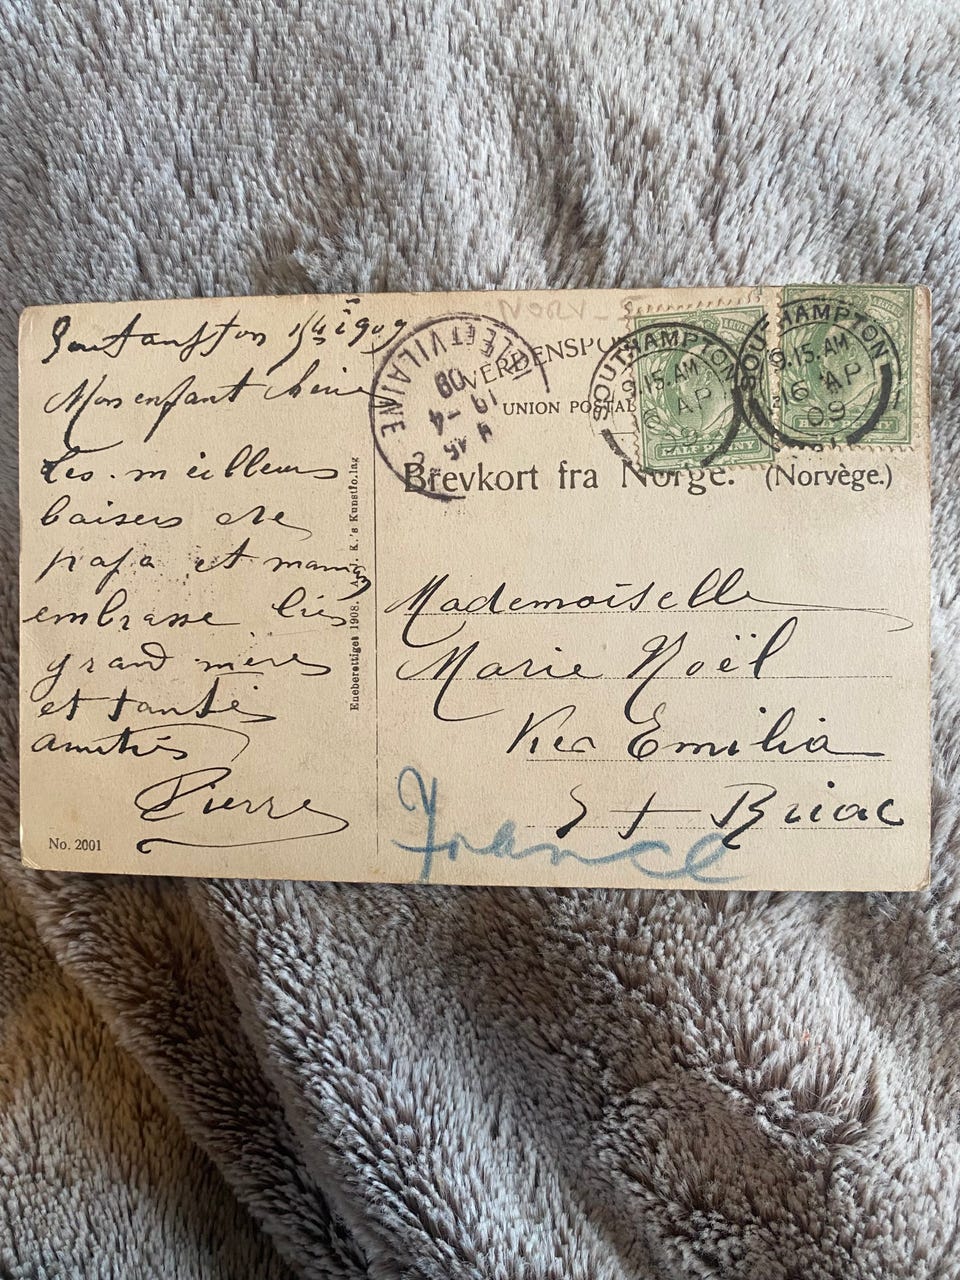 Southampton 15/4 1909
Mon enfant chérie
Les meilleurs
baisers de
papa et maman
embrasse bien
grand mères
et tantes
amitiés
Pierre
No. 2001
Eneberettiget 1908. K.'s Kunstfo.lag
ILLE ET VILAINE
19 -4
09
VERDENSPO
UNION POSTAL
Brevkort fra Norge. (Norvège.)
SOUTHAMPTON
9.15.AM
AP
9
HALFPENNY
SOUTHAMPTON
9.15.AM
16 AP
09
Mademoiselle
Marie Noël
Ker Emilia
St Briac
France